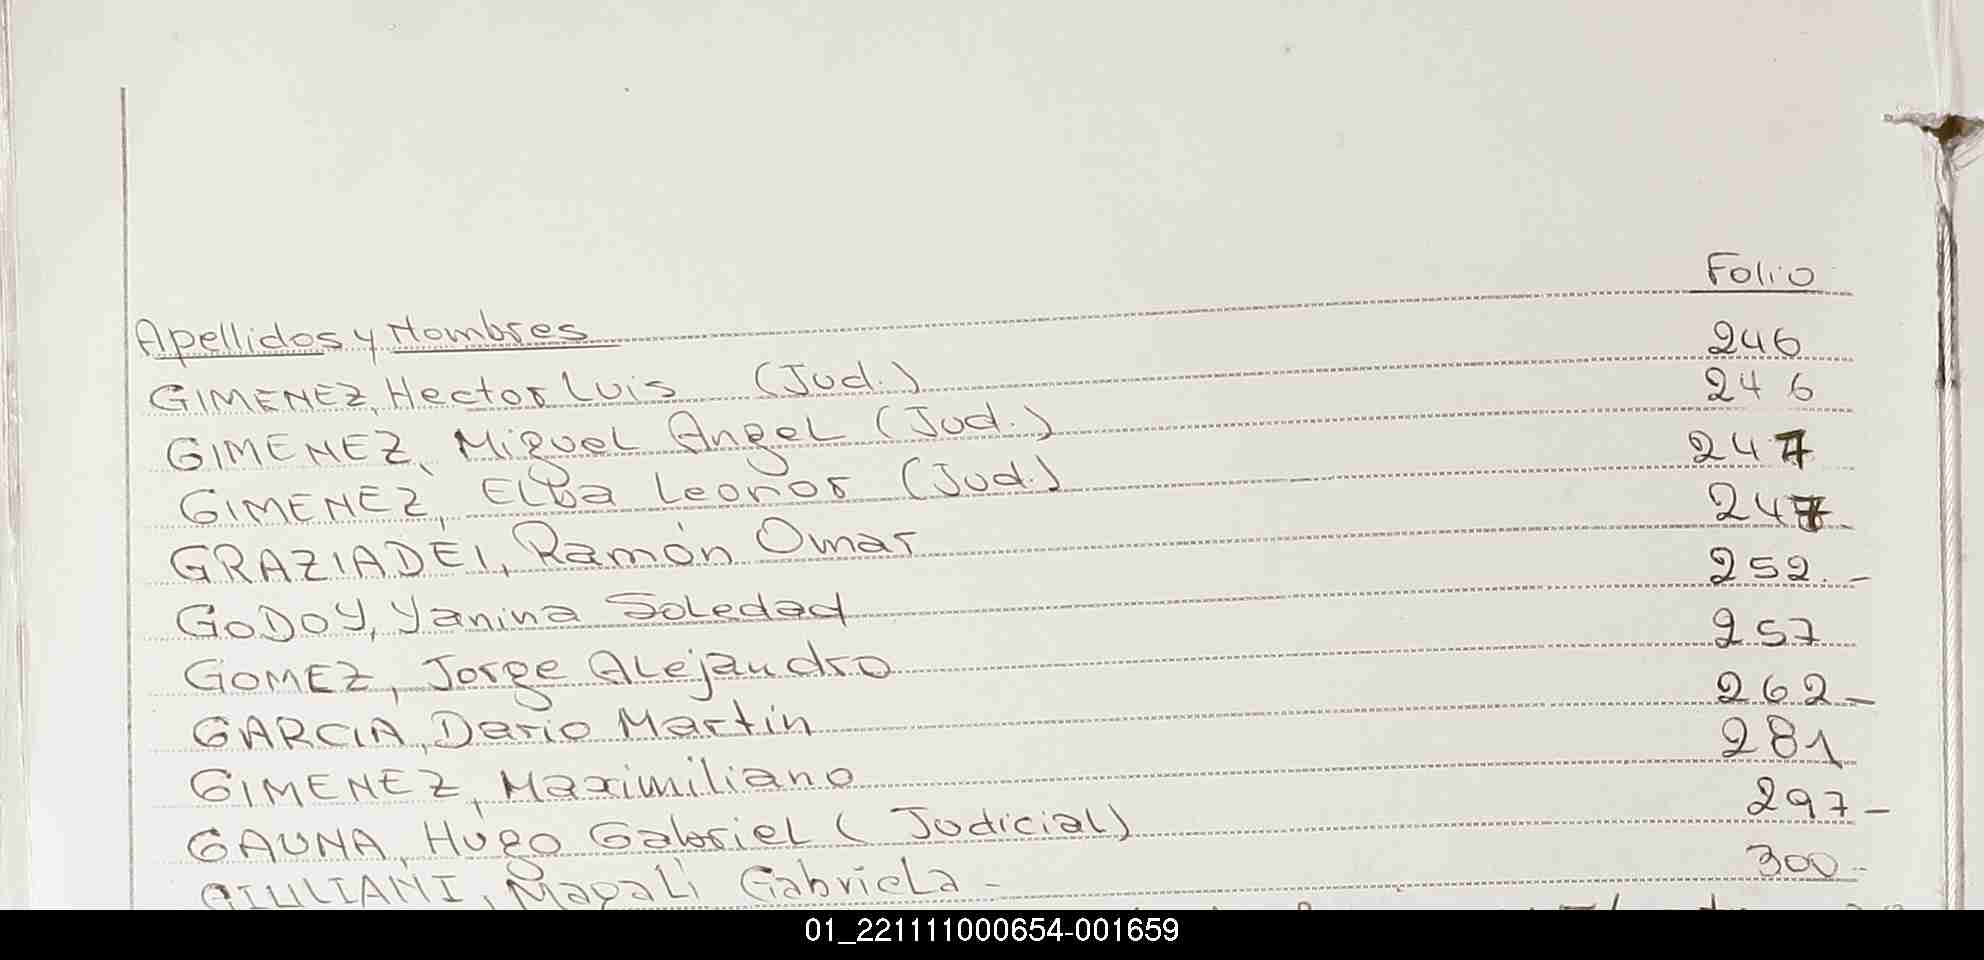 Apellidos y Nombres Folio
GIMENEZ, Hector Luis (Jud.) 246
GIMENEZ, Miguel Angel (Jud.) 246
GIMENEZ, Elba Leonor (Jud.) 247
GRAZIADEI, Ramón Omar 247
GODOY, Yanina Soledad 252.-
GOMEZ, Jorge Alejandro 257
GARCIA, Dario Martín 262-
GIMENEZ, Maximiliano 281
GAUNA, Hugo Gabriel (Judicial) 297-
GIULIANI, Magali Gabriela - 300-
01_221111000654-001659